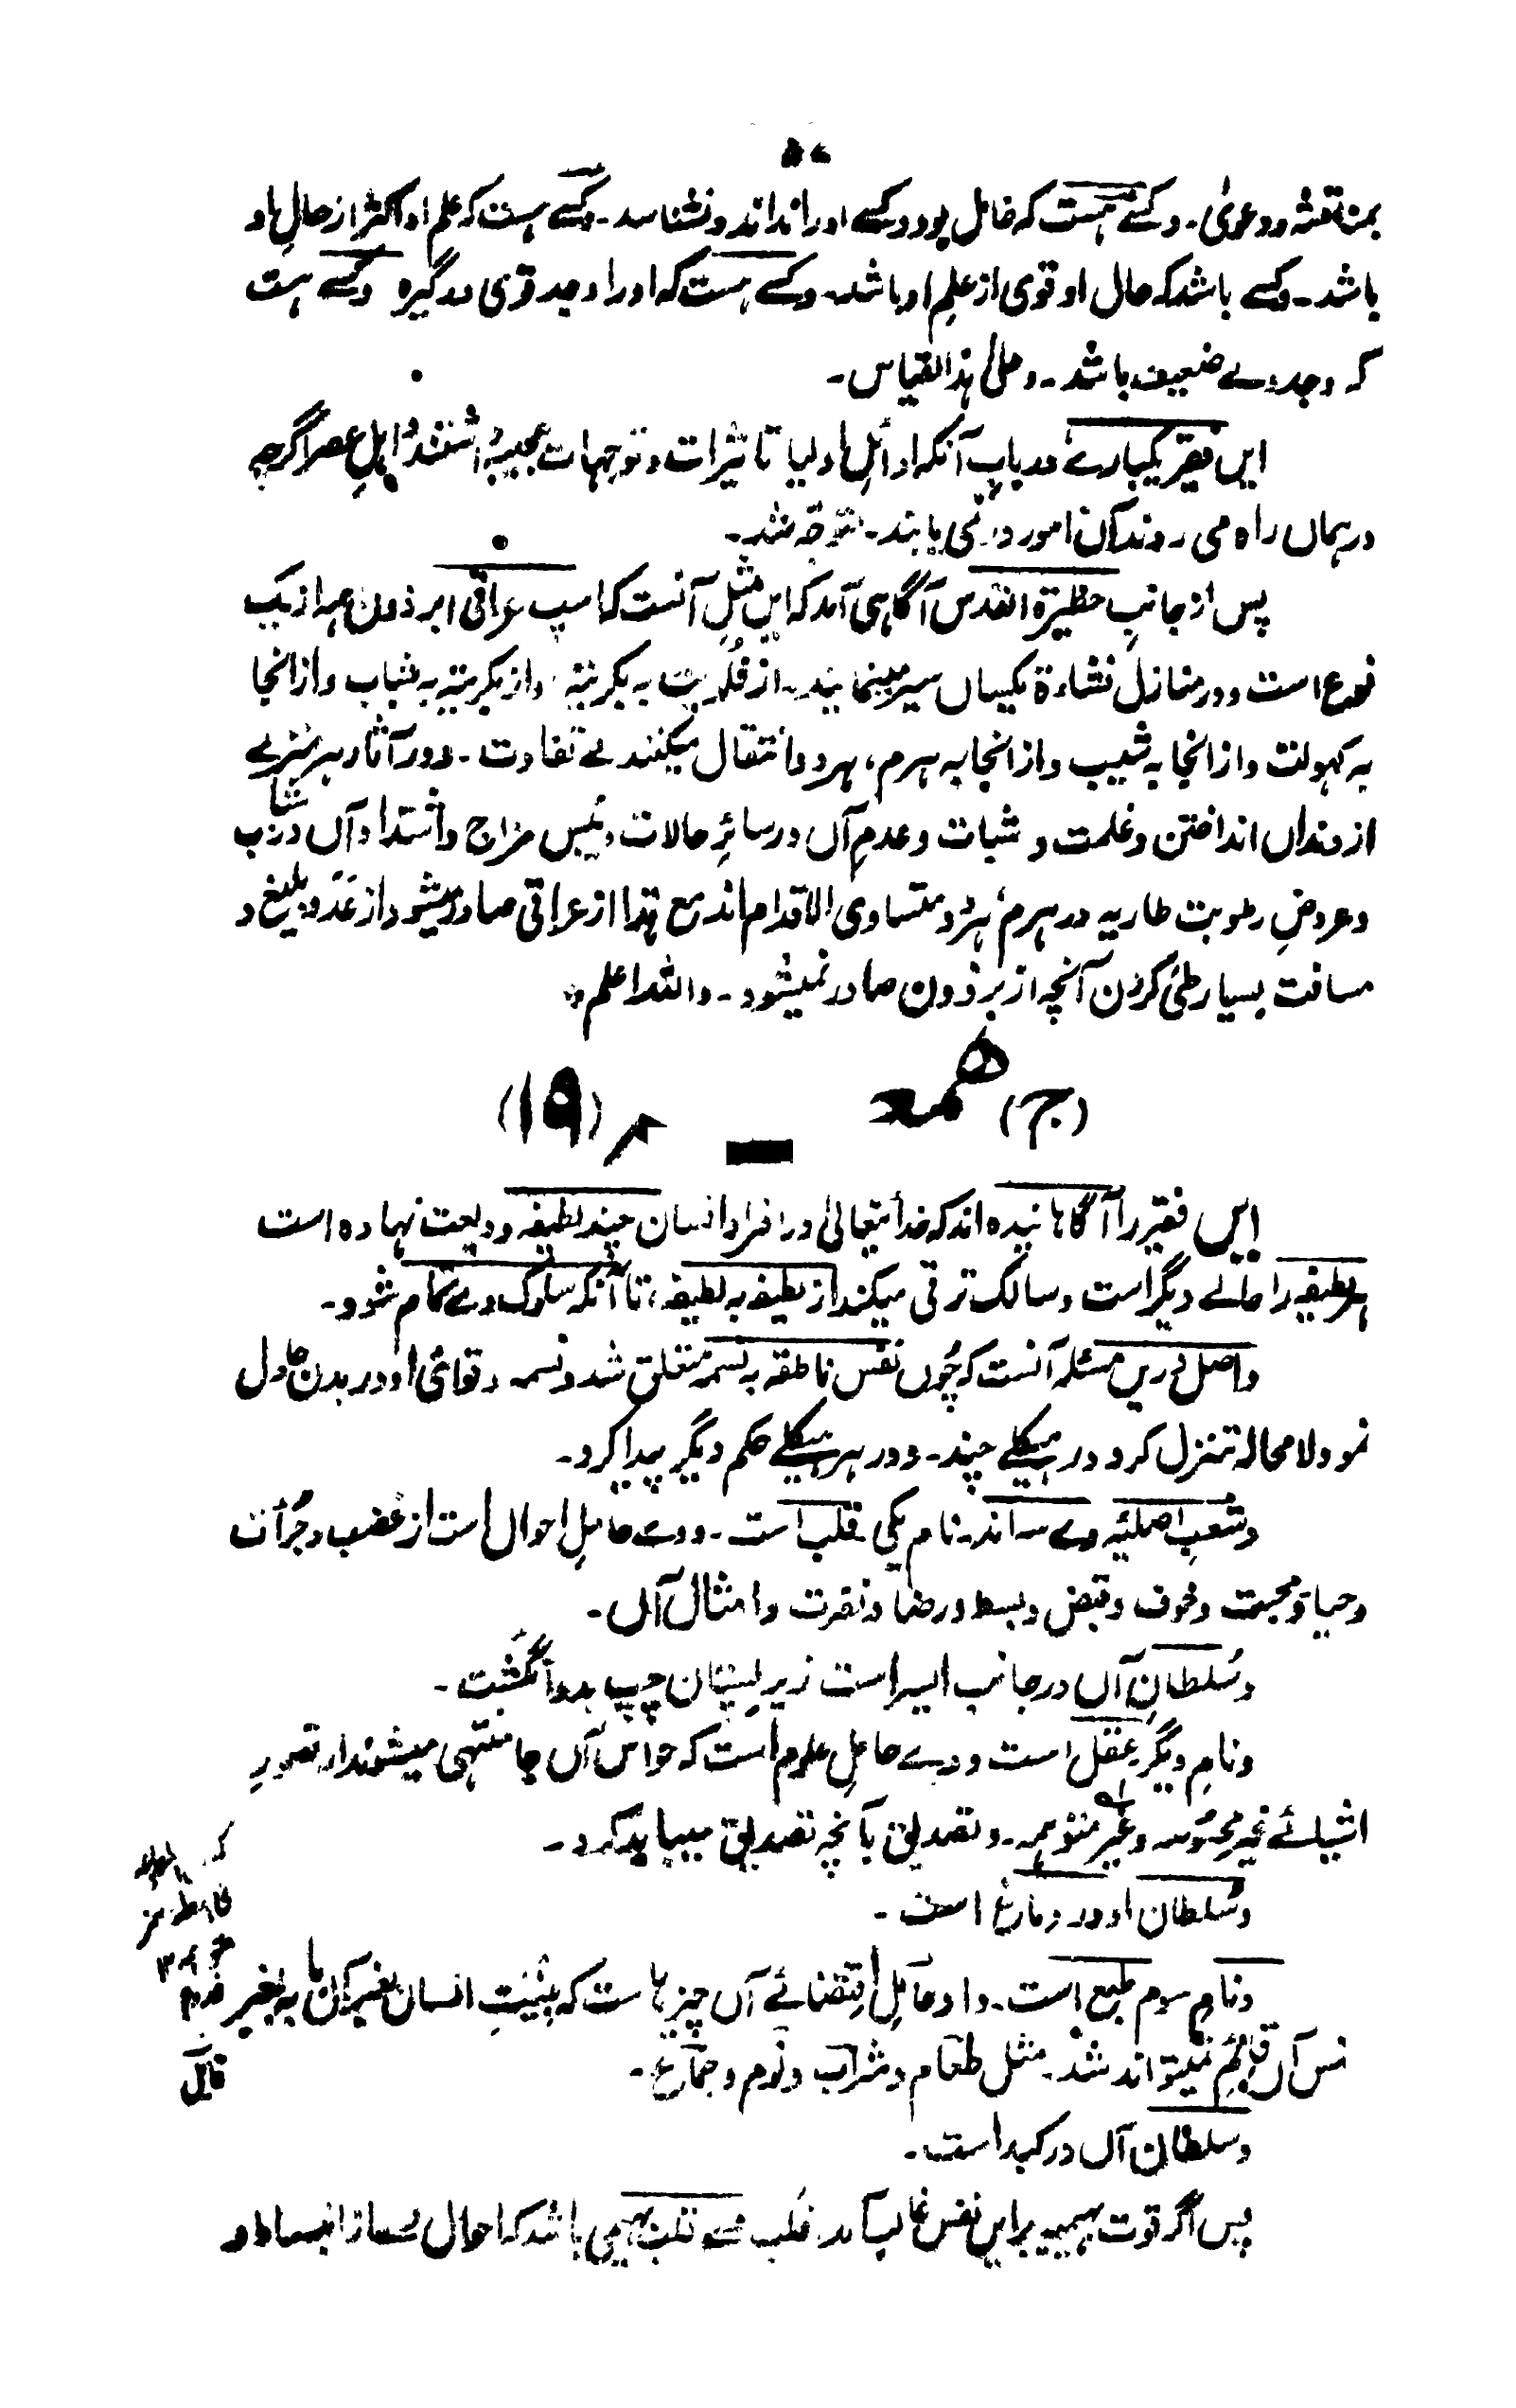 ۵۷
بمناقشہ ودعویٰ۔ وکسے ہست کہ خامل بود وکسے اورا نداند ونشناسد۔ وکسے ہست کہ علم او اکثر از حالِ او
باشد۔ وکسے باشد کہ حال او قوی از علمِ او باشد۔ وکسے ہست کہ اورا وجد قوی درگیرد وکسے ہست
کہ وجد وے ضعیف باشد۔ وعلیٰ ہذا القیاس۔
ایں فقیر یکبارے در بابِ آنکہ اوائلِ اولیا تاثیرات وتوجہات عجیبہ داشتند و اہلِ عصر اگرچہ
درہماں راہ می روند آں امور در نمی یابند۔ متوجہ شد۔
پس از جانبِ حظیرۃ القدس آگاہی آمد کہ ایں مثلِ آنست کہ اسپ عراقی و برذون ہمہ از یک
نوع است ودر منازل نشاءۃ یکساں سیر مینمایند۔ از فلویت بہ بکریتہ واز بکریتہ بہ شباب واز انجا
بہ کہولت واز انجا بہ شیب واز انجا بہ ہرم، ہردو انتقال میکنند بے تفاوت۔ ودر آثار ہر منزلے
از دنداں انداختن وغلمت و شبات وعدم آں در سائرِ حالات ویُبس مزاج واشتداد آں در شباب
وعروضِ رطوبت طاریہ در ہرم، ہردو متساوی الاقدام اند مع ہذا از عراقی صادر میشود از عَدْوِ بلیغ و
مسافت بسیار طئ کردن آنچہ از برذون صادر نمیشود۔ واللہ اعلم
(ج) ھمعـــــہ (۱۹)
ایں فقیر را آگاہانیدہ اند کہ خدایتعالیٰ در افراد انسان چند لطیفہ ودیعت نہادہ است
ہر لطیفہ را حالے دیگر است وسالک ترقی میکند از لطیفہ بہ لطیفہ، تا آنکہ سلوک وے تمام شود۔
واصل دریں مسئلہ آنست کہ چُوں نفس ناطقہ بہ نسمہ متعلق شد ونسمہ وقوائی او در بدن حلول
نمود لا محالہ تنزل کرد در ہیکلے چند۔ ودر ہر ہیکلے حکم دیگر پیدا کرد۔
وشُعبِ اصلیّہ وے سہ اند۔ نام یکی قلب است۔ ووے حاملِ احوال است از غضب وجُرأت
وحیا ومحبت وخوف وقبض وبسط ورضا ونفرت وامثال آں۔
وسُلطانِ آں در جانب ایسر است زیر پستان چپ بدو انگُشت۔
ونامِ دیگر عقل است ووے حاملِ علوم است کہ حواس آں جا منتہی میشوند از تصورِ
اشیائے غیر محسوسہ وغیر متوہمہ۔ وتصدیق بآنچہ تصدیق میباید کرد۔
وسُلطان او در دماغ است۔
ونامِ سوم طبع است۔ واو حاملِ اقتضائے آں چیزہا ست کہ بِنْیَتِ انسان بغیر آں یا بہ بغیر
جنس آں قائم نمیتواند شد۔ مثل طعام وشراب ونوم وجماع۔
وسلطانِ آں در کبد است۔
پس اگر قوت بہیمیہ بر ایں نفس غالب آمد۔ قلب وے قلب بہیمی باشد کہ احوال وے از انبساط و